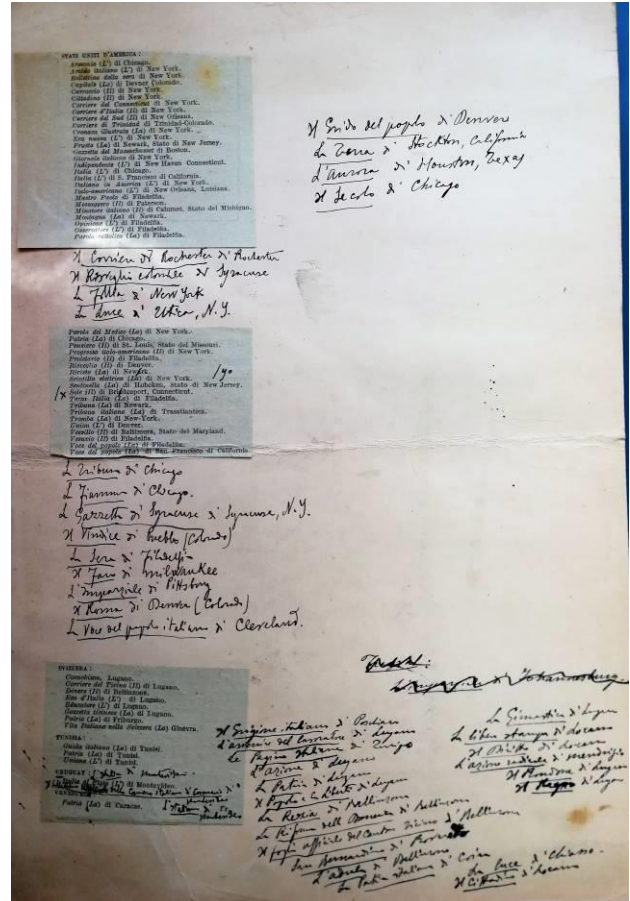 STATI UNITI D'AMERICA:
Armonia (L') di Chicago.
Araldo italiano (L') di New York.
Bollettino della sera di New York.
Capitale (La) di Denver Colorado.
Carroccio (Il) di New York.
Cittadino (Il) di New York.
Corriere del Connecticut di New York.
Corriere d'Italia (Il) di New York.
Corriere del Sud (Il) di New Orleans.
Corriere di Trinidad di Trinidad-Colorado.
Cronaca illustrata (La) di New York.
Era nuova (L') di New York.
Frusta (La) di Newark, Stato di New Jersey.
Gazzetta del Massachusset di Boston.
Giornale italiano di New York.
Indipendente (L') di New Haven Connecticut.
Italia (L') di Chicago.
Italia (L') di S. Francisco di California.
Italiano in America (L') di New York.
Italo-americano (L') di New Orleans, Luisiana.
Mastro Paolo di Filadelfia.
Messaggero (Il) di Paterson.
Minatore italiano (Il) di Calumet, Stato del Michigan.
Montagna (La) di Newark.
Opinione (L') di Filadelfia.
Osservatore (L') di Filadelfia.
Parola cattolica (La) di Filadelfia.
Il Grido del popolo di Denver
La Terra di Stockton, California
L'Aurora di Houston, Texas
Il Secolo di Chicago
Il Corriere di Rochester di Rochester
Il Risveglio coloniale di Syracuse
La Follia di New York
La Luce di Utica, N.Y.
Parola dei Medici (La) di New York.
Patria (La) di Chicago.
Pensiero (Il) di St. Louis, Stato del Missouri.
Progresso italo-americano (Il) di New York.
Proletario (Il) di Filadelfia.
Risveglio (Il) di Denver.
Rivista (La) di New York.
Scintilla elettrica (La) di New York.
Sentinella (La) di Hoboken, Stato di New Jersey.
Sole (Il) di Bridgeport, Connecticut.
Terza Italia (La) di Filadelfia.
Tribuna (La) di Newark.
Tribuna italiana (La) di Transatlantica.
Tromba (La) di New-York.
Unione (L') di Denver.
Vessillo (Il) di Baltimora, Stato del Maryland.
Vesuvio (Il) di Filadelfia.
Voce del popolo (La) di Filadelfia.
Voce del popolo (La) di San Francisco di California
La Tribuna di Chicago
La Fiamma di Chicago.
La Gazzetta di Syracuse di Syracuse, N.Y.
Il Vindice di Pueblo (Colorado)
La Sera di Filadelfia
Il Faro di Milwaukee
L'Imparziale di Pittsburg
Il Roma di Denver (Colorado)
La Voce del popolo italiano di Cleveland.
di Johannesburg
SVIZZERA:
Coenobium, Lugano.
Corriere del Ticino (Il) di Lugano.
Dovere (Il) di Bellinzona.
Eco d'Italia (L') di Lugano.
Educatore (L') di Lugano.
Gazzetta ticinese (La) di Lugano.
Patria (La) di Friburgo.
Vita Italiana nella Svizzera (La) Ginevra.
TUNISIA:
Guida italiana (La) di Tunisi.
Patria (La) di Tunisi.
Unione (L') di Tunisi.
URUGUAY:
Italia (L') di Montevideo.
Patria (La) di Caracas.
Il Grigione italiano di Poschiavo
L'avvenire del lavoratore di Lugano
La Pagina italiana di Zurigo
L'azione di Lugano
La Patria di Lugano
Il Popolo e Libertà di Lugano
La Rezia di Bellinzona
La Riforma della Domenica di Bellinzona
Il foglio officiale del Canton Ticino di Bellinzona
San Bernardino di Roveredo
L'adula di Bellinzona
La Patria italiana di Coira
La Ginnastica di Lugano
La libera stampa di Locarno
L'azione radicale di Mendrisio
Il Ragno di Lugano
La Luce di Chiasso.
Il Cittadino di Locarno